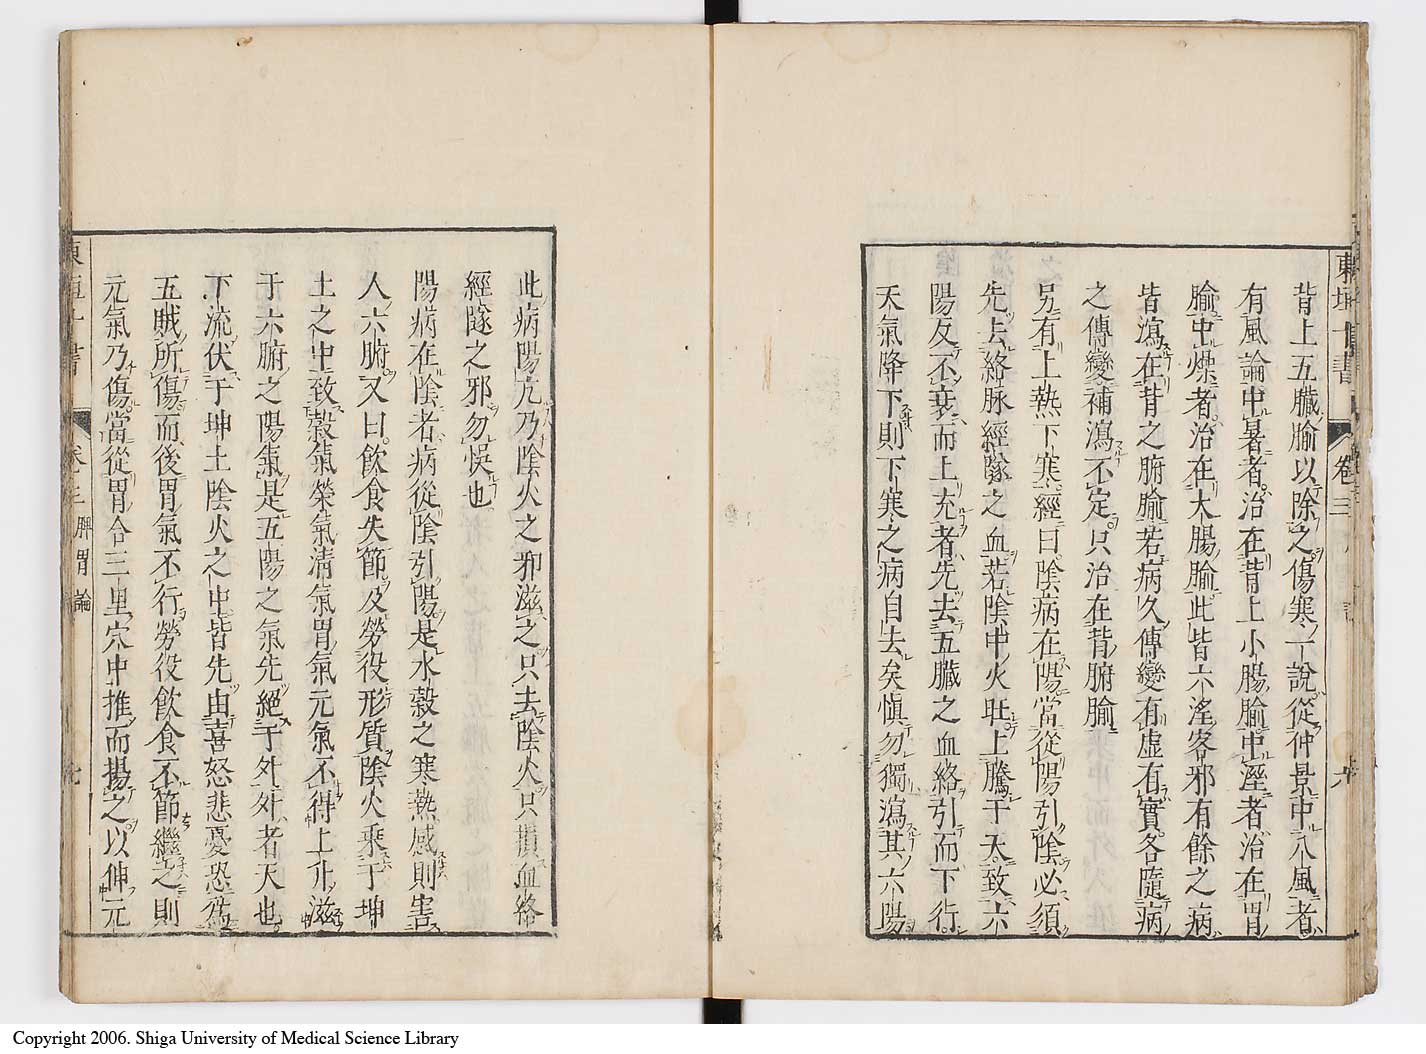 東垣十書
卷三
背上五臟腧以除之傷寒一說從仲景中八風者
有風論中暑者治在背上小腸腧中溼者治在胃
腧中燥者治在大腸腧此皆六淫客邪有餘之病
皆瀉在背之腑腧若病久傳變有虛有實各隨病
之傳變補瀉不定只治在背腑腧
另有上熱下寒經曰陰病在陽當從陽引陰必須
先去絡脉經隧之血若陰中火旺上騰于天致六
陽反不衰而上充者先去五臟之血絡引而下行
天氣降下則下寒之病自去矣慎勿獨瀉其六陽
此病陽亢乃陰火之邪滋之只去陰火只損血絡
經隧之邪勿悞也
陽病在陰者病從陰引陽是水穀之寒熱感則害
人六腑又曰飲食失節及勞役形質陰火乘于坤
土之中致穀氣榮氣清氣胃氣元氣不得上升滋
于六腑之陽氣是五陽之氣先絕于外外者天也
下流伏于坤土陰火之中皆先由喜怒悲憂恐為
五賊所傷而後胃氣不行勞役飲食不節繼之則
元氣乃傷當從胃合三里穴中推而揚之以伸元
東垣十書
卷三 脾胃論
七
Copyright 2006. Shiga University of Medical Science Library